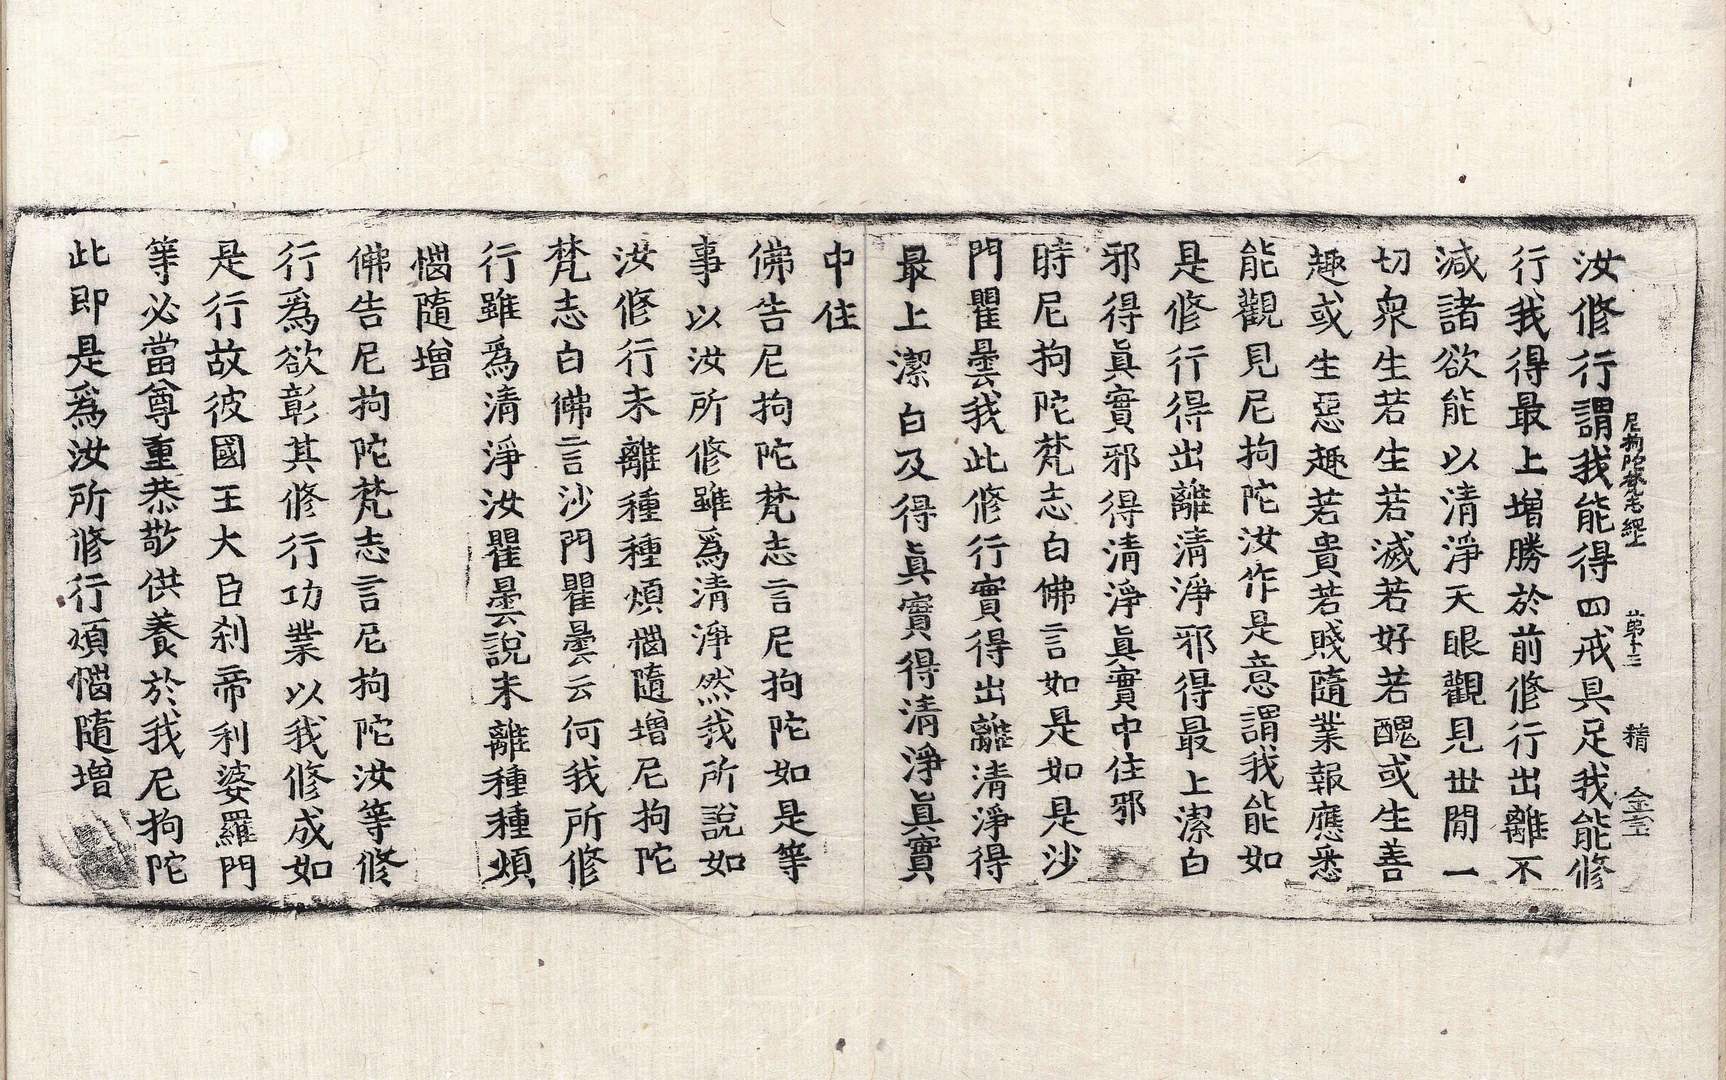 汝修行謂我能得四戒具足我能修
行我得最上增勝於前修行出離不
減諸欲能以清淨天眼觀見世閒一
切衆生若生若滅若好若醜或生善
趣或生惡趣若貴若賤隨業報應悉
能觀見尼拘陀汝作是意謂我能如
是修行得出離清淨邪得最上潔白
邪得眞實邪得清淨眞實中住邪
時尼拘陀梵志白佛言如是如是沙
門瞿曇我此修行實得出離清淨得
最上潔白及得眞實得清淨眞實
中住
佛告尼拘陀梵志言尼拘陀如是等
事以汝所修雖爲清淨然我所說如
汝修行未離種種煩惱隨增尼拘陀
梵志白佛言沙門瞿曇云何我所修
行雖爲清淨汝瞿曇說未離種種煩
惱隨增
佛告尼拘陀梵志言尼拘陀汝等修
行爲欲彰其修行功業以我修成如
是行故彼國王大臣刹帝利婆羅門
等必當尊重恭敬供養於我尼拘陀
此即是爲汝所修行煩惱隨增
尼拘陀梵志經 第十三 精